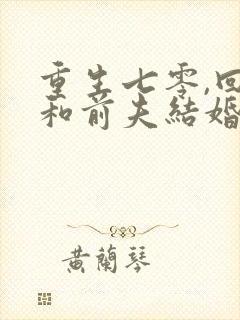 重生七零,回
和前夫結婚
黄蘭琴